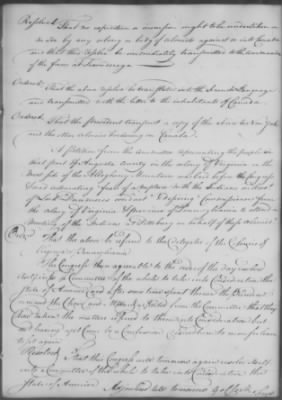 Resolved That no expedition or incursion ought to be undertaken or
made by any colony or body of colonists against or into Canada
and that this resolve be immediately transmitted to the commander
of the forces at Ticonderoga
Ordered, That the above resolve be translated into the French Language
and transmitted with the letter to the inhabitants of Canada.
Ordered That the President transmit a copy of the above to New York
and the other colonies bordering on Canada.
A petition from the committee representing the people in
that part of Augusta county in the colony of Virginia on the
West side of the Allegheny Mountain was laid before the Congress
fears of a rupture with the Indians on acct
of Lord Dunmores conduct & desiring Commissioners from
the colony of Virginia & province of Pennsylvania to attend a
meeting of the Indians at Pittsburg on behalf of these colonies
Ordered That the above be referred to the delegates of the colonies of
Virginia & Pennsylvania.
The Congress then agreeable to the order of the day resolved
itself into a committee of the whole to take into consideration the
state of America and after some time spent therein the President
resumed the Chair and reported from the Committee that they
had taken the matters referred to them into consideration but
not having yet come to a conclusion desired him to move for leave
to sit again
Resolved That this Congress will tomorrow again resolve itself
into a committee of the whole to take into consideration the
state of America
Adjourned till tomorrow 9 o'Clock